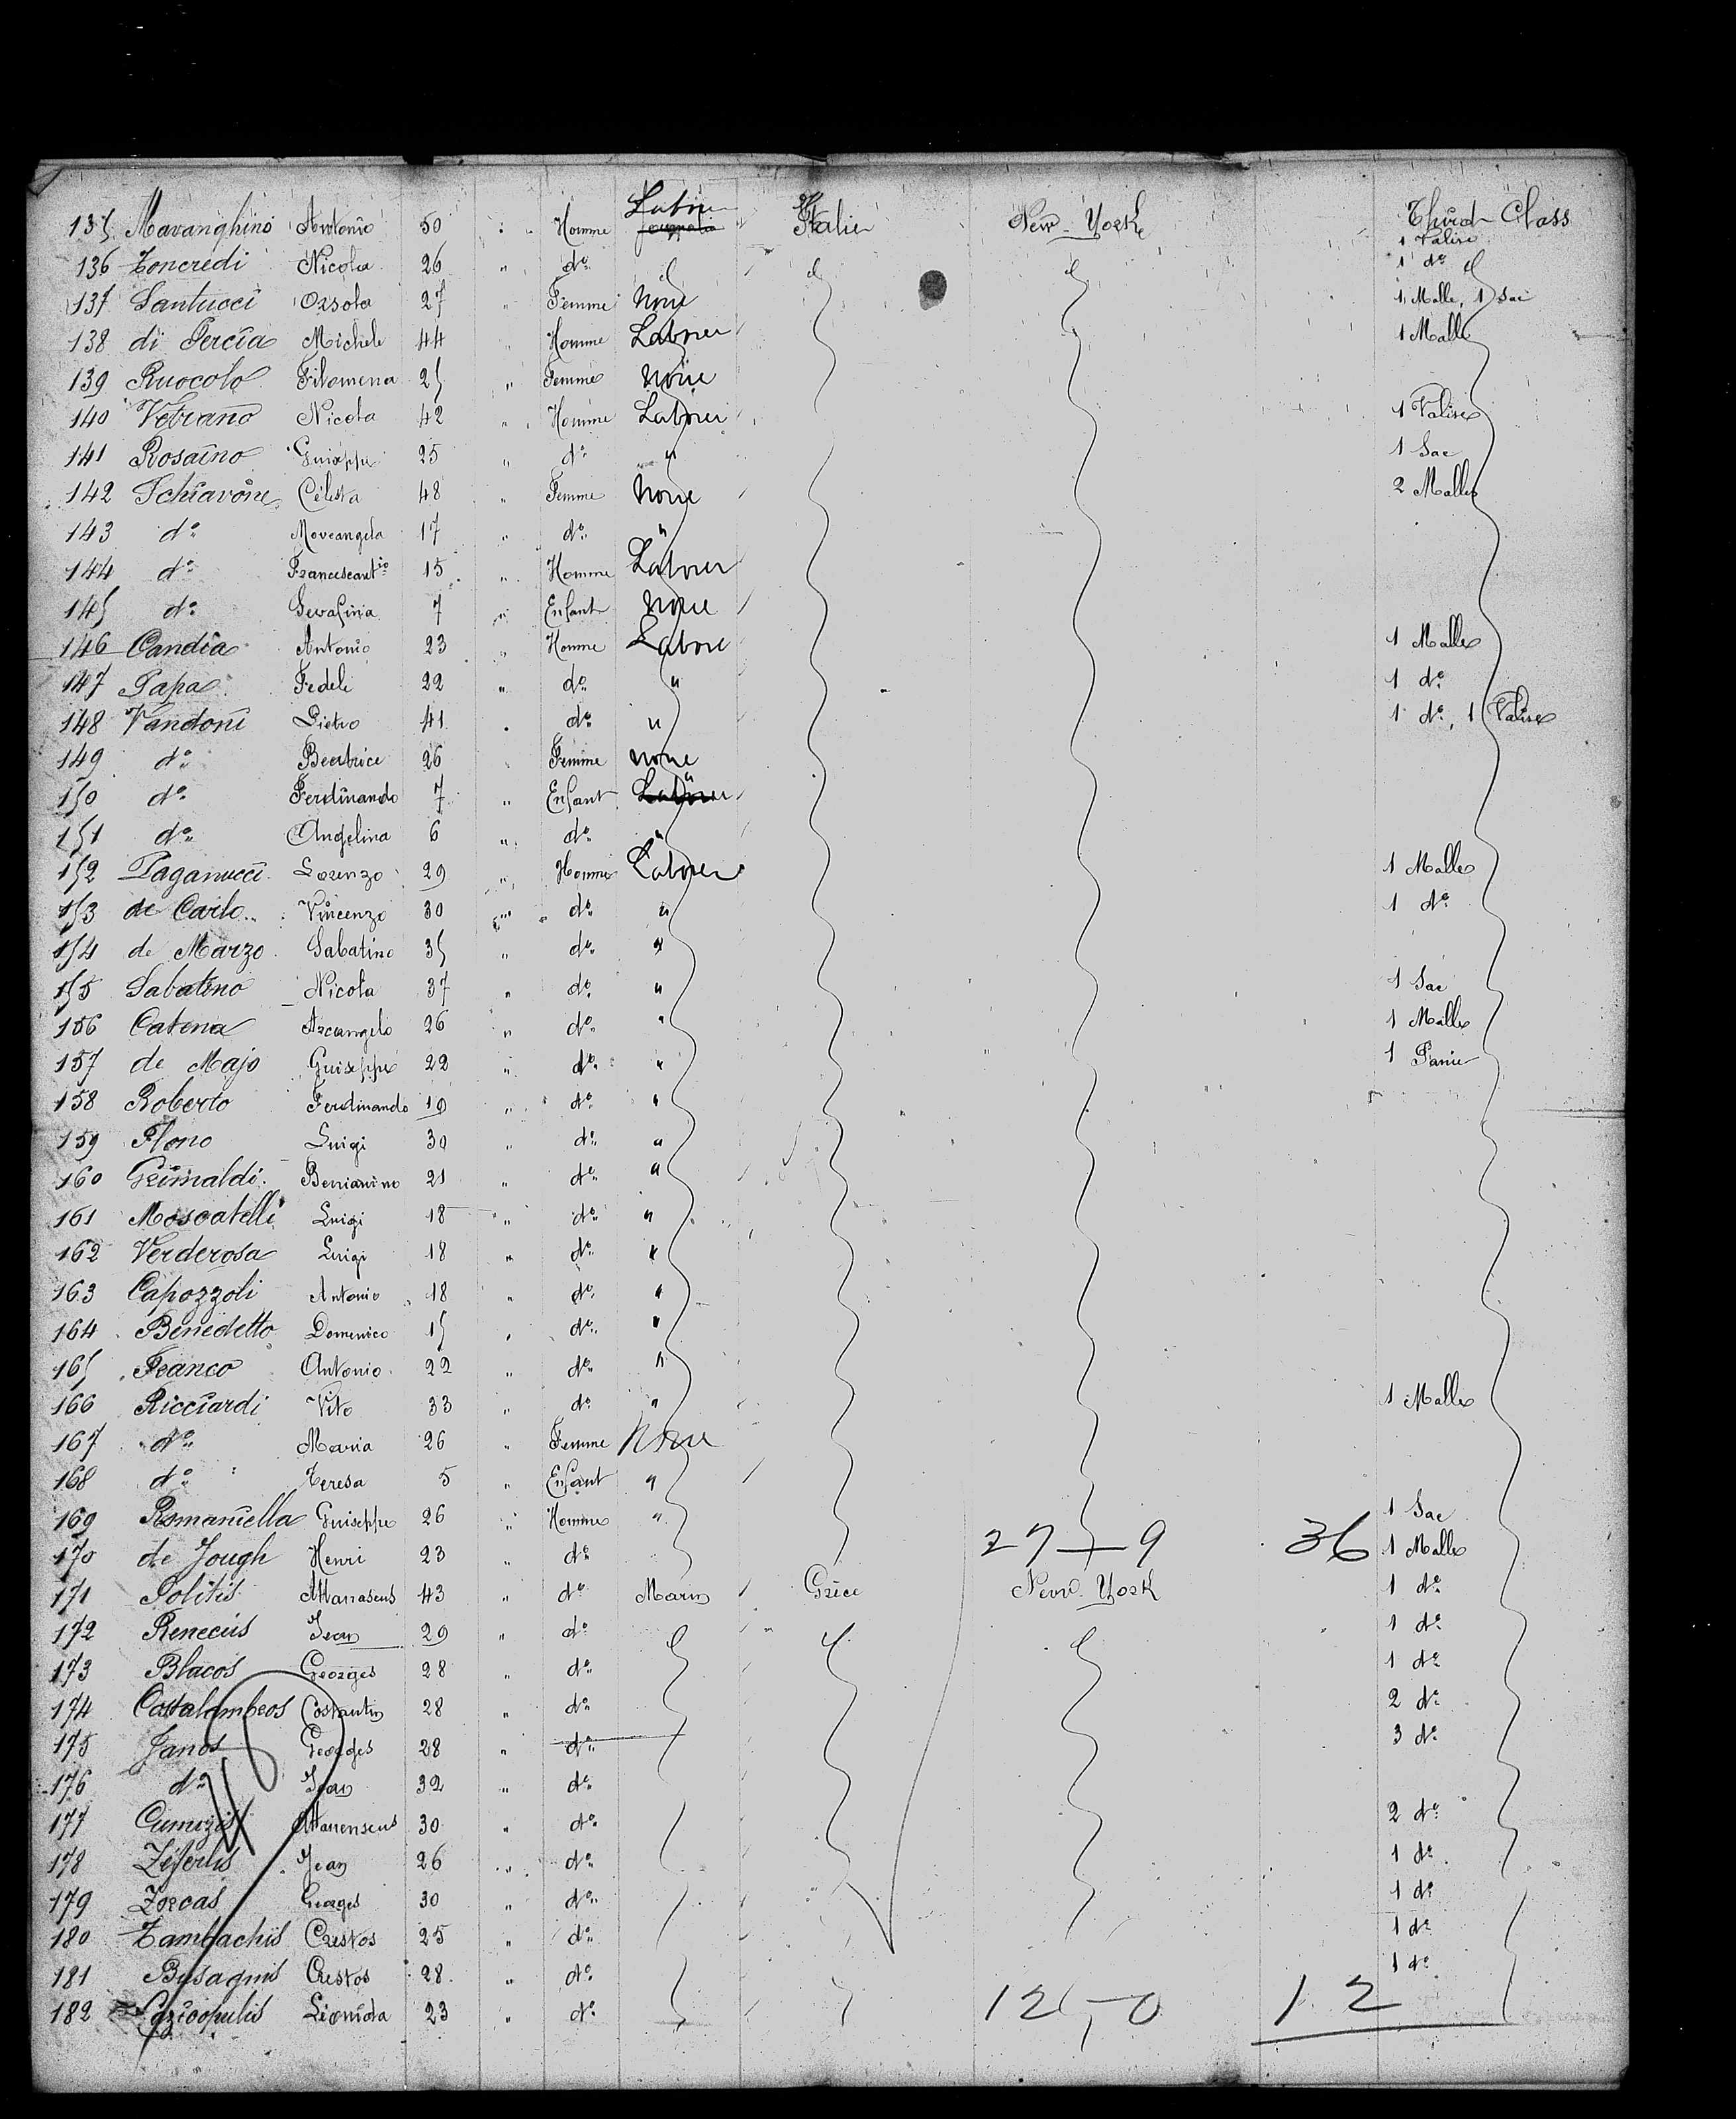 135 Mavanghino Antonio 50 " Homme Labrer Italie New-York Third Class 1 Valise
136 Toncredi Nicola 26 " do 1 do
137 Santucci Orsola 27 " Femme None 1 Malle, 1 Sac
138 di Percia Michele 44 " Homme Labrer 1 Malle
139 Ruocolo Filomena 25 " Femme None
140 Vetrano Nicola 42 " Homme Labrer 1 Valise
141 Rosaino Guiseppe 25 " do " 1 Sac
142 Schiavone Celesta 48 " Femme None 2 Malles
143 do Moveangela 17 " do "
144 do Francescantio 15 " Homme Labrer
145 do Serafina 7 " Enfant None
146 Candia Antonio 23 " Homme Labrer 1 Malle
147 Papa Fedele 22 " do " 1 do
148 Vandoni Pietro 41 " do " 1 do, 1 Valise
149 do Beatrice 26 " Femme none
150 do Ferdinando 7 " Enfant "
151 do Angelina 6 " do "
152 Paganucci Lorenzo 29 " Homme Labrer 1 Malle
153 de Carlo Vincenzo 30 " do " 1 do
154 de Marzo Sabatino 35 " do "
155 Sabatino Nicola 37 " do " 1 Sac
156 Catena Arcangelo 26 " do " 1 Malle
157 de Majo Guiseppe 22 " do " 1 Panier
158 Roberto Ferdinando 19 " do "
159 Plono Luigi 30 " do "
160 Grimaldi Beniamino 21 " do "
161 Moscatelli Luigi 18 " do "
162 Verderosa Luigi 18 " do "
163 Capozzoli Antonio 18 " do "
164 Benedetto Domenico 15 " do "
165 Franco Antonio 22 " do "
166 Ricciardi Vito 33 " do " 1 Malle
167 do Maria 26 " Femme None
168 do Teresa 5 " Enfant "
169 Romaniella Guiseppe 26 " Homme " 1 Sac
170 de Jough Henri 23 " do 27-9 36 1 Malle
171 Politis Attanaseus 43 " do Marin Grèce New-York 1 do
172 Renecus Jean 29 " do 1 do
173 Blacos Georges 28 " do 1 do
174 Costalambeos Costantin 28 " do 2 do
175 Janos Georges 28 " do 3 do
176 do Jean 32 " do
177 Cumuzis Attanenseus 30 " do 2 do
178 Zeferlis Jean 26 " do 1 do
179 Zorcas Georges 30 " do 1 do
180 Tambachis Crestos 25 " do 1 do
181 Busagnis Crestos 28 " do 1 do
182 Leonida 23 " do 12-0 12